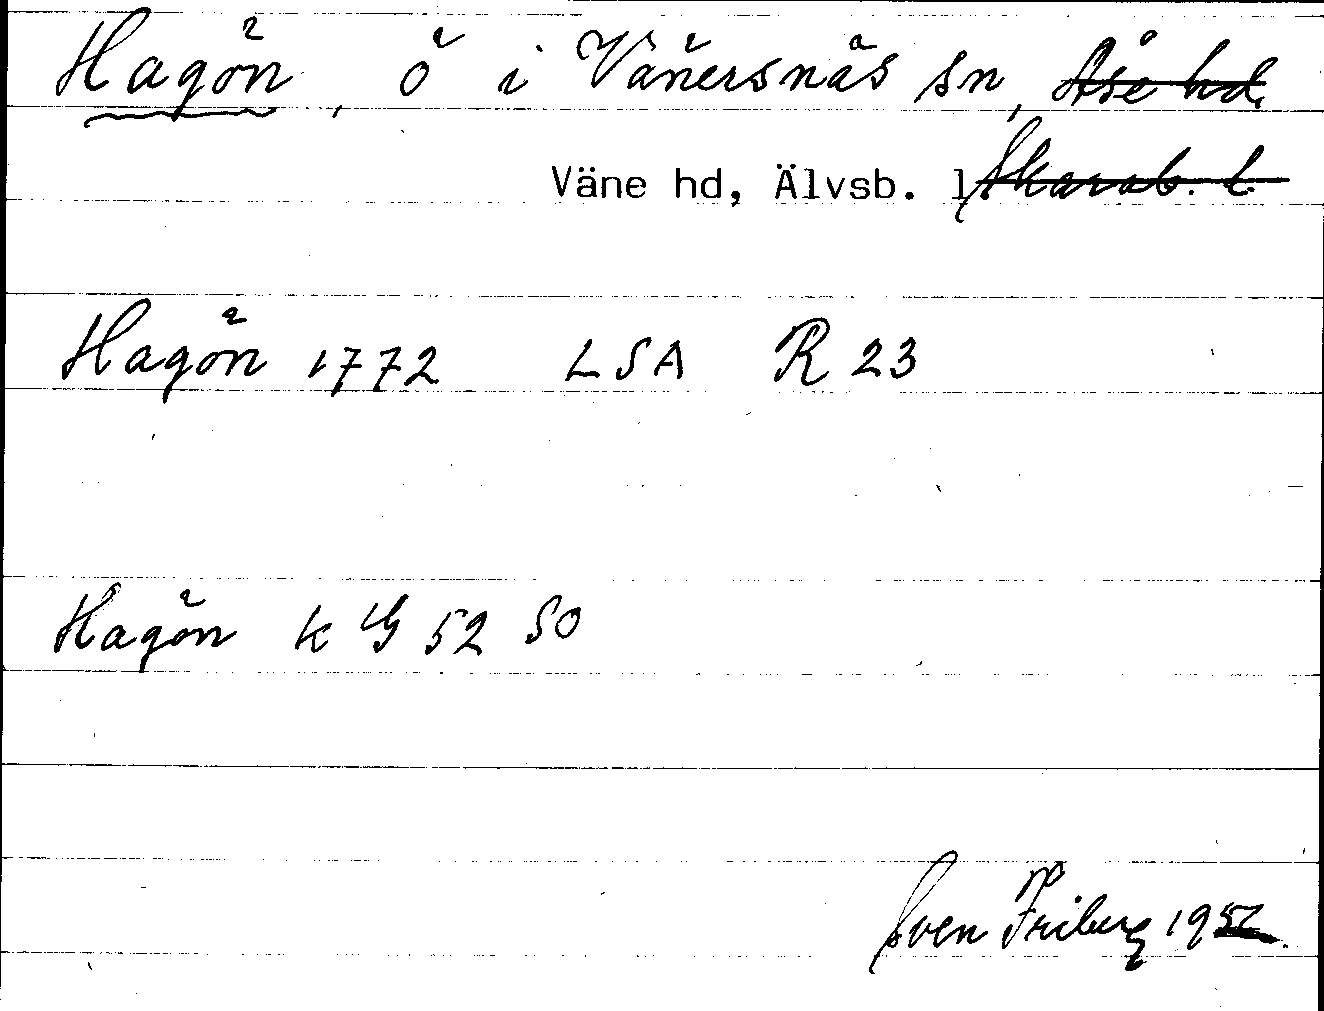 Hagön, ö i Vänersnäs sn, Åse hd.
Väne hd, Älvsb. l Skarab. l.
Hagön 1772 LSA R 23
Hagön k G 52 SO
Sven Friberg 195